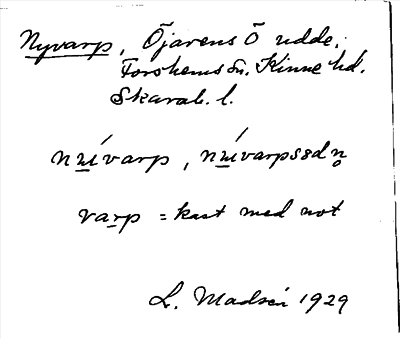 Nyvarp, Öjarens Ö udde,
Forshems sn. Kinne hd.
Skarab. l.
nuívarp, nuívarpsedn
varp = kast med not
L. Madsén 1929